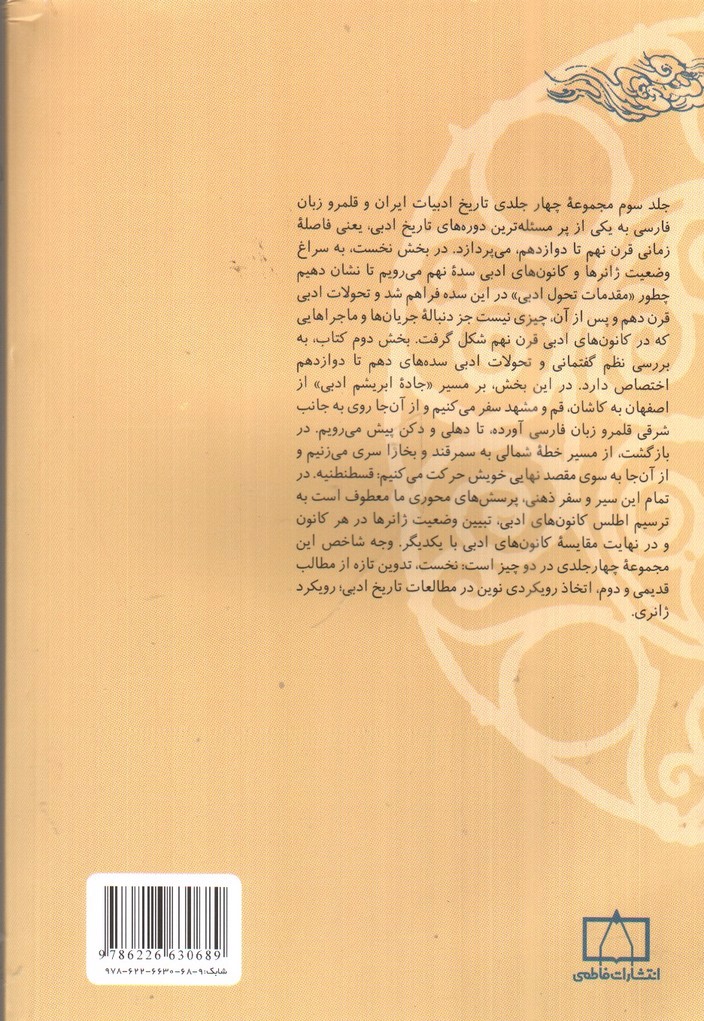 جلد سوم مجموعهٔ چهار جلدی تاریخ ادبیات ایران و قلمرو زبان
فارسی به یکی از پر مسئله‌ترین دوره‌های تاریخ ادبی، یعنی فاصلهٔ
زمانی قرن نهم تا دوازدهم، می‌پردازد. در بخش نخست، به سراغ
وضعیت ژانرها و کانون‌های ادبی سدهٔ نهم می‌رویم تا نشان دهیم
چطور «مقدمات تحول ادبی» در این سده فراهم شد و تحولات ادبی
قرن دهم و پس از آن، چیزی نیست جز دنبالهٔ جریان‌ها و ماجراهایی
که در کانون‌های ادبی قرن نهم شکل گرفت. بخش دوم کتاب، به
بررسی نظم گفتمانی و تحولات ادبی سده‌های دهم تا دوازدهم
اختصاص دارد. در این بخش، بر مسیر «جادهٔ ابریشم ادبی» از
اصفهان به کاشان، قم و مشهد سفر می‌کنیم و از آن‌جا روی به جانب
شرقی قلمرو زبان فارسی آورده، تا دهلی و دکن پیش می‌رویم. در
بازگشت، از مسیر خطهٔ شمالی به سمرقند و بخارا سری می‌زنیم و
از آن‌جا به سوی مقصد نهایی خویش حرکت می‌کنیم: قسطنطنیه. در
تمام این سیر و سفر ذهنی، پرسش‌های محوری ما معطوف است به
ترسیم اطلس کانون‌های ادبی، تبیین وضعیت ژانرها در هر کانون
و در نهایت مقایسهٔ کانون‌های ادبی با یکدیگر. وجه شاخص این
مجموعهٔ چهارجلدی در دو چیز است: نخست، تدوین تازه از مطالب
قدیمی و دوم، اتخاذ رویکردی نوین در مطالعات تاریخ ادبی؛ رویکرد
ژانری.
9 786226 630689
شابک: ۹-۶۸-۶۶۳۰-۶۲۲-۹۷۸
انتشارات فاطمی